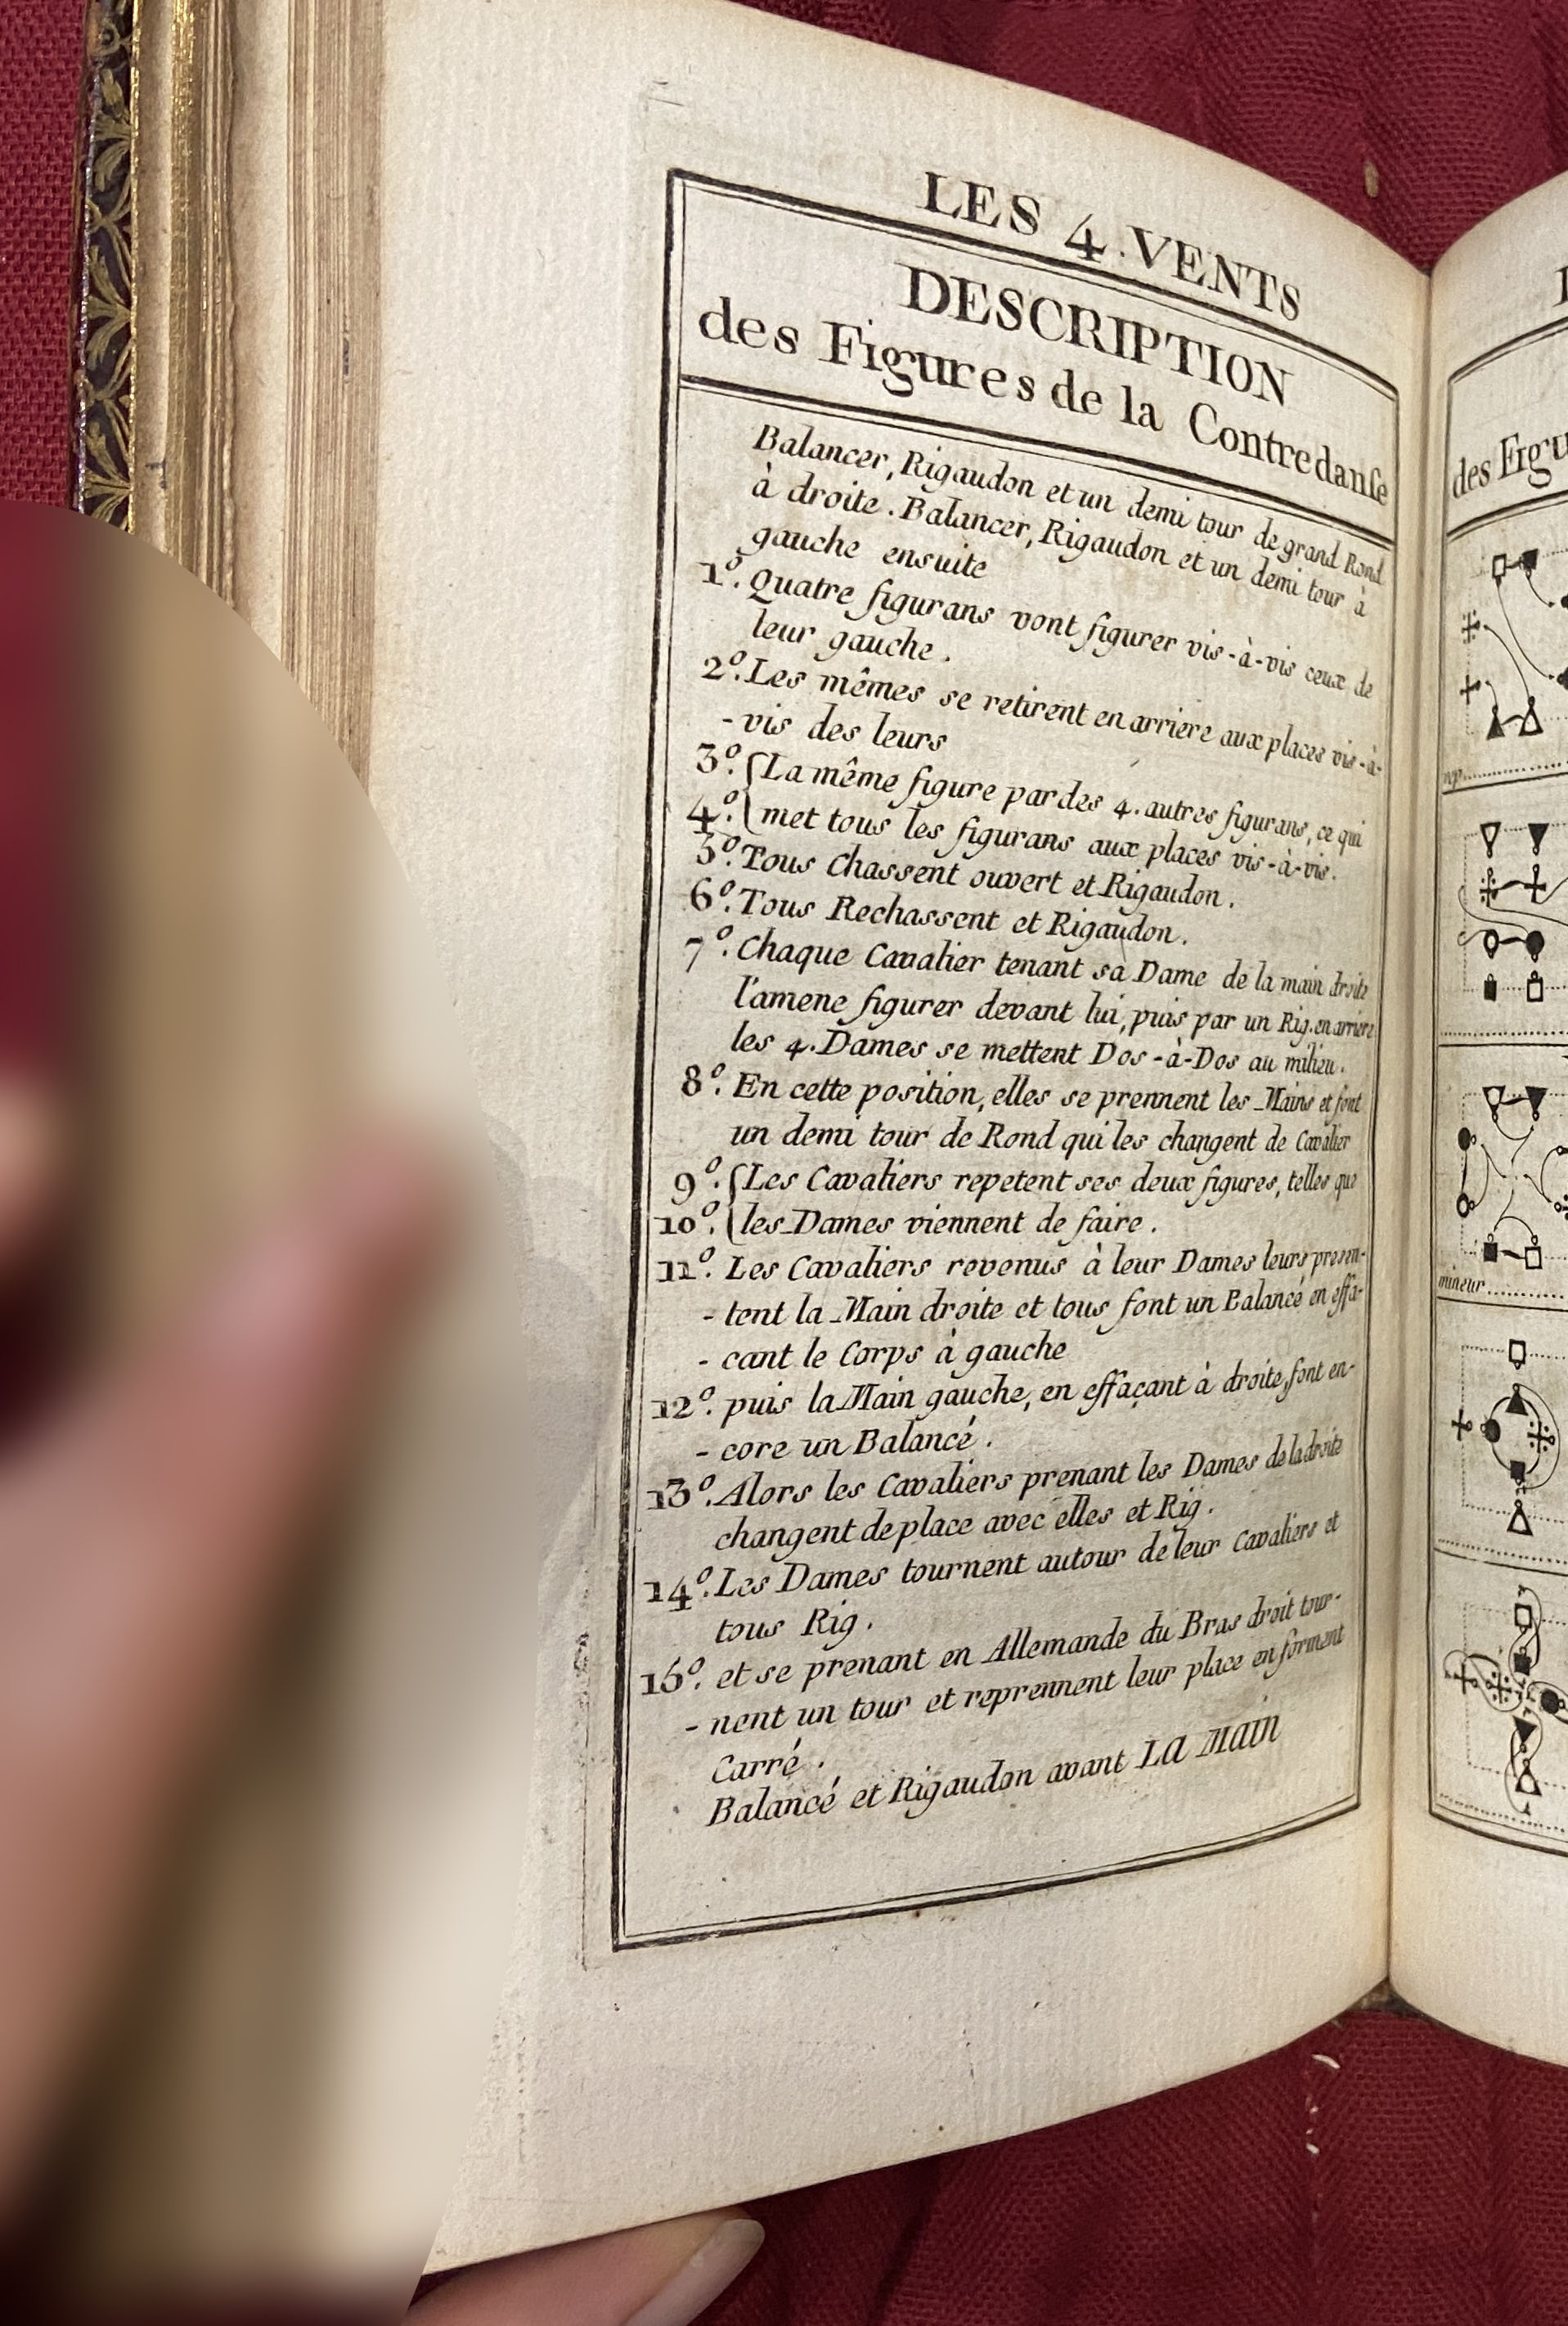 LES 4. VENTS
DESCRIPTION
des Figures de la Contredanſe
Balancer, Rigaudon et un demi tour de grand Rond
à droite. Balancer, Rigaudon et un demi tour à
gauche ensuite
1º. Quatre figurans vont figurer vis-à-vis ceux de
leur gauche.
2º. Les mêmes se retirent en arriere aux places vis-à-
- vis des leurs
3º. { La même figure par des 4. autres figurans, ce qui
4º. { met tous les figurans aux places vis-à-vis.
5º. Tous Chassent ouvert et Rigaudon.
6º. Tous Rechassent et Rigaudon.
7º. Chaque Cavalier tenant sa Dame de la main droite
l'amene figurer devant lui, puis par un Rig. en arriere
les 4. Dames se mettent Dos-à-Dos au milieu.
8º. En cette position, elles se prennent les Mains et font
un demi tour de Rond qui les changent de Cavalier
9º. { Les Cavaliers repetent ses deux figures, telles que
10º. { les Dames viennent de faire.
11º. Les Cavaliers revenus à leur Dames leurs presen-
- tent la Main droite et tous font un Balancé en effa-
- cant le Corps à gauche
12º. puis la Main gauche, en effaçant à droite, font en-
- core un Balancé.
13º. Alors les Cavaliers prenant les Dames de la droite
changent de place avec elles et Rig.
14º. Les Dames tournent autour de leur Cavaliers et
tous Rig.
15º. et se prenant en Allemande du Bras droit tour-
- nent un tour et reprennent leur place en forment
Carré.
Balancé et Rigaudon avant LA MAIN
des Figu
mineur